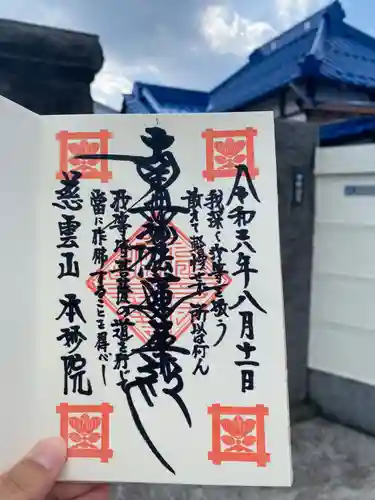 令和六年八月十一日
我深く汝等を敬う
敢えて軽慢せず所以は何ん
南無妙法蓮華経
汝等皆菩薩の道を行じて
當に作佛することを得べし
慈雲山 本妙院